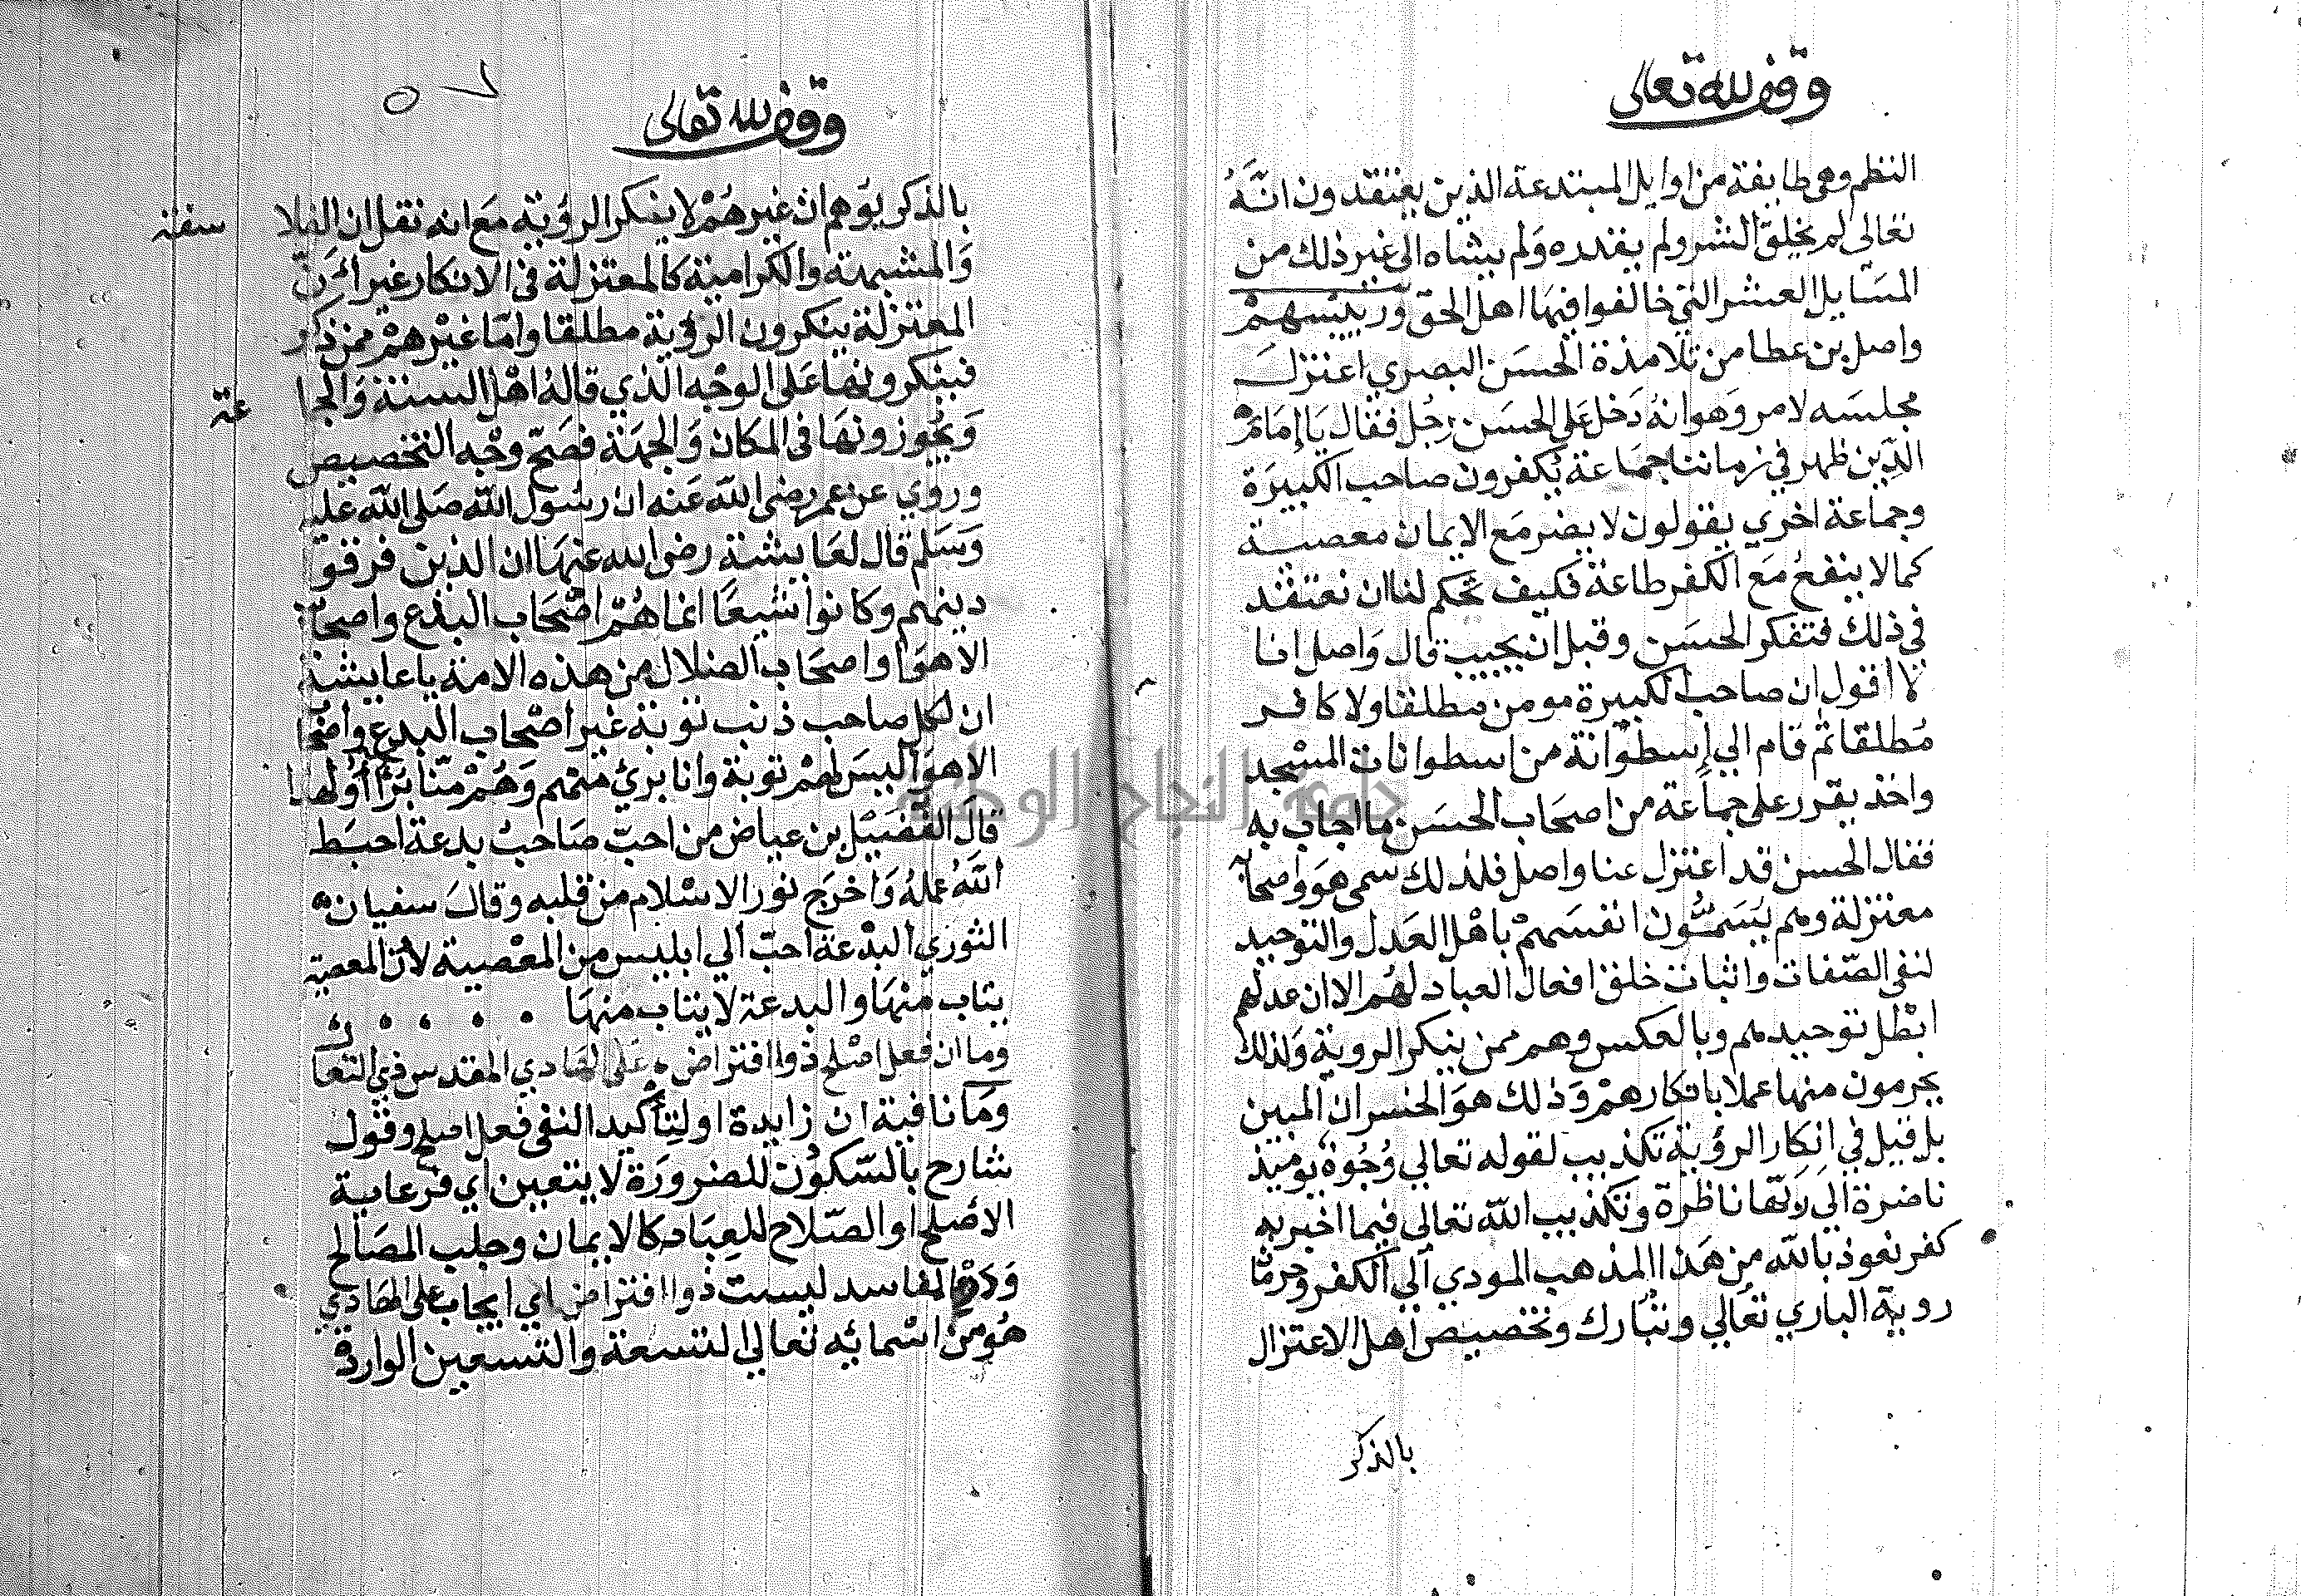 وقف لله تعالى
النظم وهي طايفة من اوايل المبتدعة الذين يعتقدون انَّهُ
تعالى لم يخلق الشر ولم يقدره وَلم يشاه الى غير ذلك من
المسَايل العشر التي خالفوا فيهَا اهل الحق وَربيسهمْ
واصل بن عطا من تلامذة الحسَن البصري اعتزلَ
مجلسَه لامر وَهو انهُ دَخل عَلى الحسَن رجُل فقال يَا إمَام
الدِّين ظهر في زماننا جمَاعة يُكفرون صاحب الكبيرَة
وجماعة اخري يقولون لا يضر مَع الايمان معصيــة
كما لا ينفعُ مَع الكفر طاعة فكيف تحكم لنا ان نعتقد
في ذلك فتفكر الحسَن وقبل ان يجيب قال وَاصل انا
لا اقول ان صاحب الكبيرة مومن مطلقا ولا كافر
مُطلقا ثم قام الي إسطوَانة من اسطوانات المسْجد
واخذ يقرر على جماعة من اصحَاب الحسَن ما اجاب به
فقال الحسن قد اعتزل عنا واصل فلذلك سمى هوَ واصحابه
معتزلة وهم يُسَمُّون انفسَهمْ باهْل العَدل والتوحيد
لنفى الصّفات واثبات خلق افعال العباد لهُم الا ان عدلهم
ابْطل توحيدهم وبالعكس وهم ممن ينكر الروية وَلذلك
يحرمون منها عملا بانكارهمْ وَذلك هوَ الخسران المبين
بل قيل في انكار الرؤية تكذيب لقوله تعالي وُجُوهٌ يوميذ
ناضرة الَي رَبّها ناظرة وتكذيب الله تعالى فيما اخبر به
كفر نعوذ بالله من هَذا المذهب المودي الي الكفر وحرمان
روية الباري تعَالي وتبَارك وتخصيص اهل الاعتزال
بالذكر
وقف لله تعالى
٥٧
بالذكر يوَهم ان غيرهُمْ لا ينكر الرؤية مَع انه نقل ان الفلا سفة
وَالمشبهة والكرامية كالمعتزلة في الانكار غير انَّ
المعتزلة ينكرون الرؤية مطلقا وامّا غيْرهمْ ممن ذكر
فينكرونها عَلى الوجْه الذي قالهُ اهْل السنة وَالجا عة
وَيُجوزونهَا في المكان وَالجهَة فصَحّ وجْه التخصيص
وروي عن عمر رضى الله عَنه ان رسُول الله صَلى الله عليه
وَسَلم قال لعَايشة رضى الله عنهَا ان الذين فرقوا
دينهم وكانوا شيعًا انما هُمْ اصْحَاب البدَع واصحاب
الاهوَا واصحَاب الضلال من هذه الامة يا عايشة
ان لكل صاحب ذنب توبة غير اصْحاب البدع واصْحا
الاهوَا ليسَ لهمْ توبة وانا برئ منهم وَهُمْ منّا بَرَا
قال الفُضَيْل بن عياض من احبّ صَاحبُ بدعة احبَط
اللَّهُ عملهُ وَاخرَج نور الاسْلام من قلبه وقالَ سفيان
الثوري البدْعة احبّ الي ابليس من المعْصية لان المعصية
يتاب منهَا والبدعة لا يتاب منهَا
وما ان فعل اصْلح ذوا افتراض عَلى الهَادي المقدس ذي التعالى
وَمَا نافية ان زايدة اولتِأكيد النفى فعل اصلح وقول
شارح بالسّكوُن للضرورَة لا يتعين اي فرعاية
الاصْلح او الصّلاح للعِبَاد كالايمان وجلب المصَالح
وَدرْءِ المفاسد ليست ذوا افتراض اي ايجاب على الهَادي
هُو منْ اسْمائه تعالي التسعة والتسعين الواردة